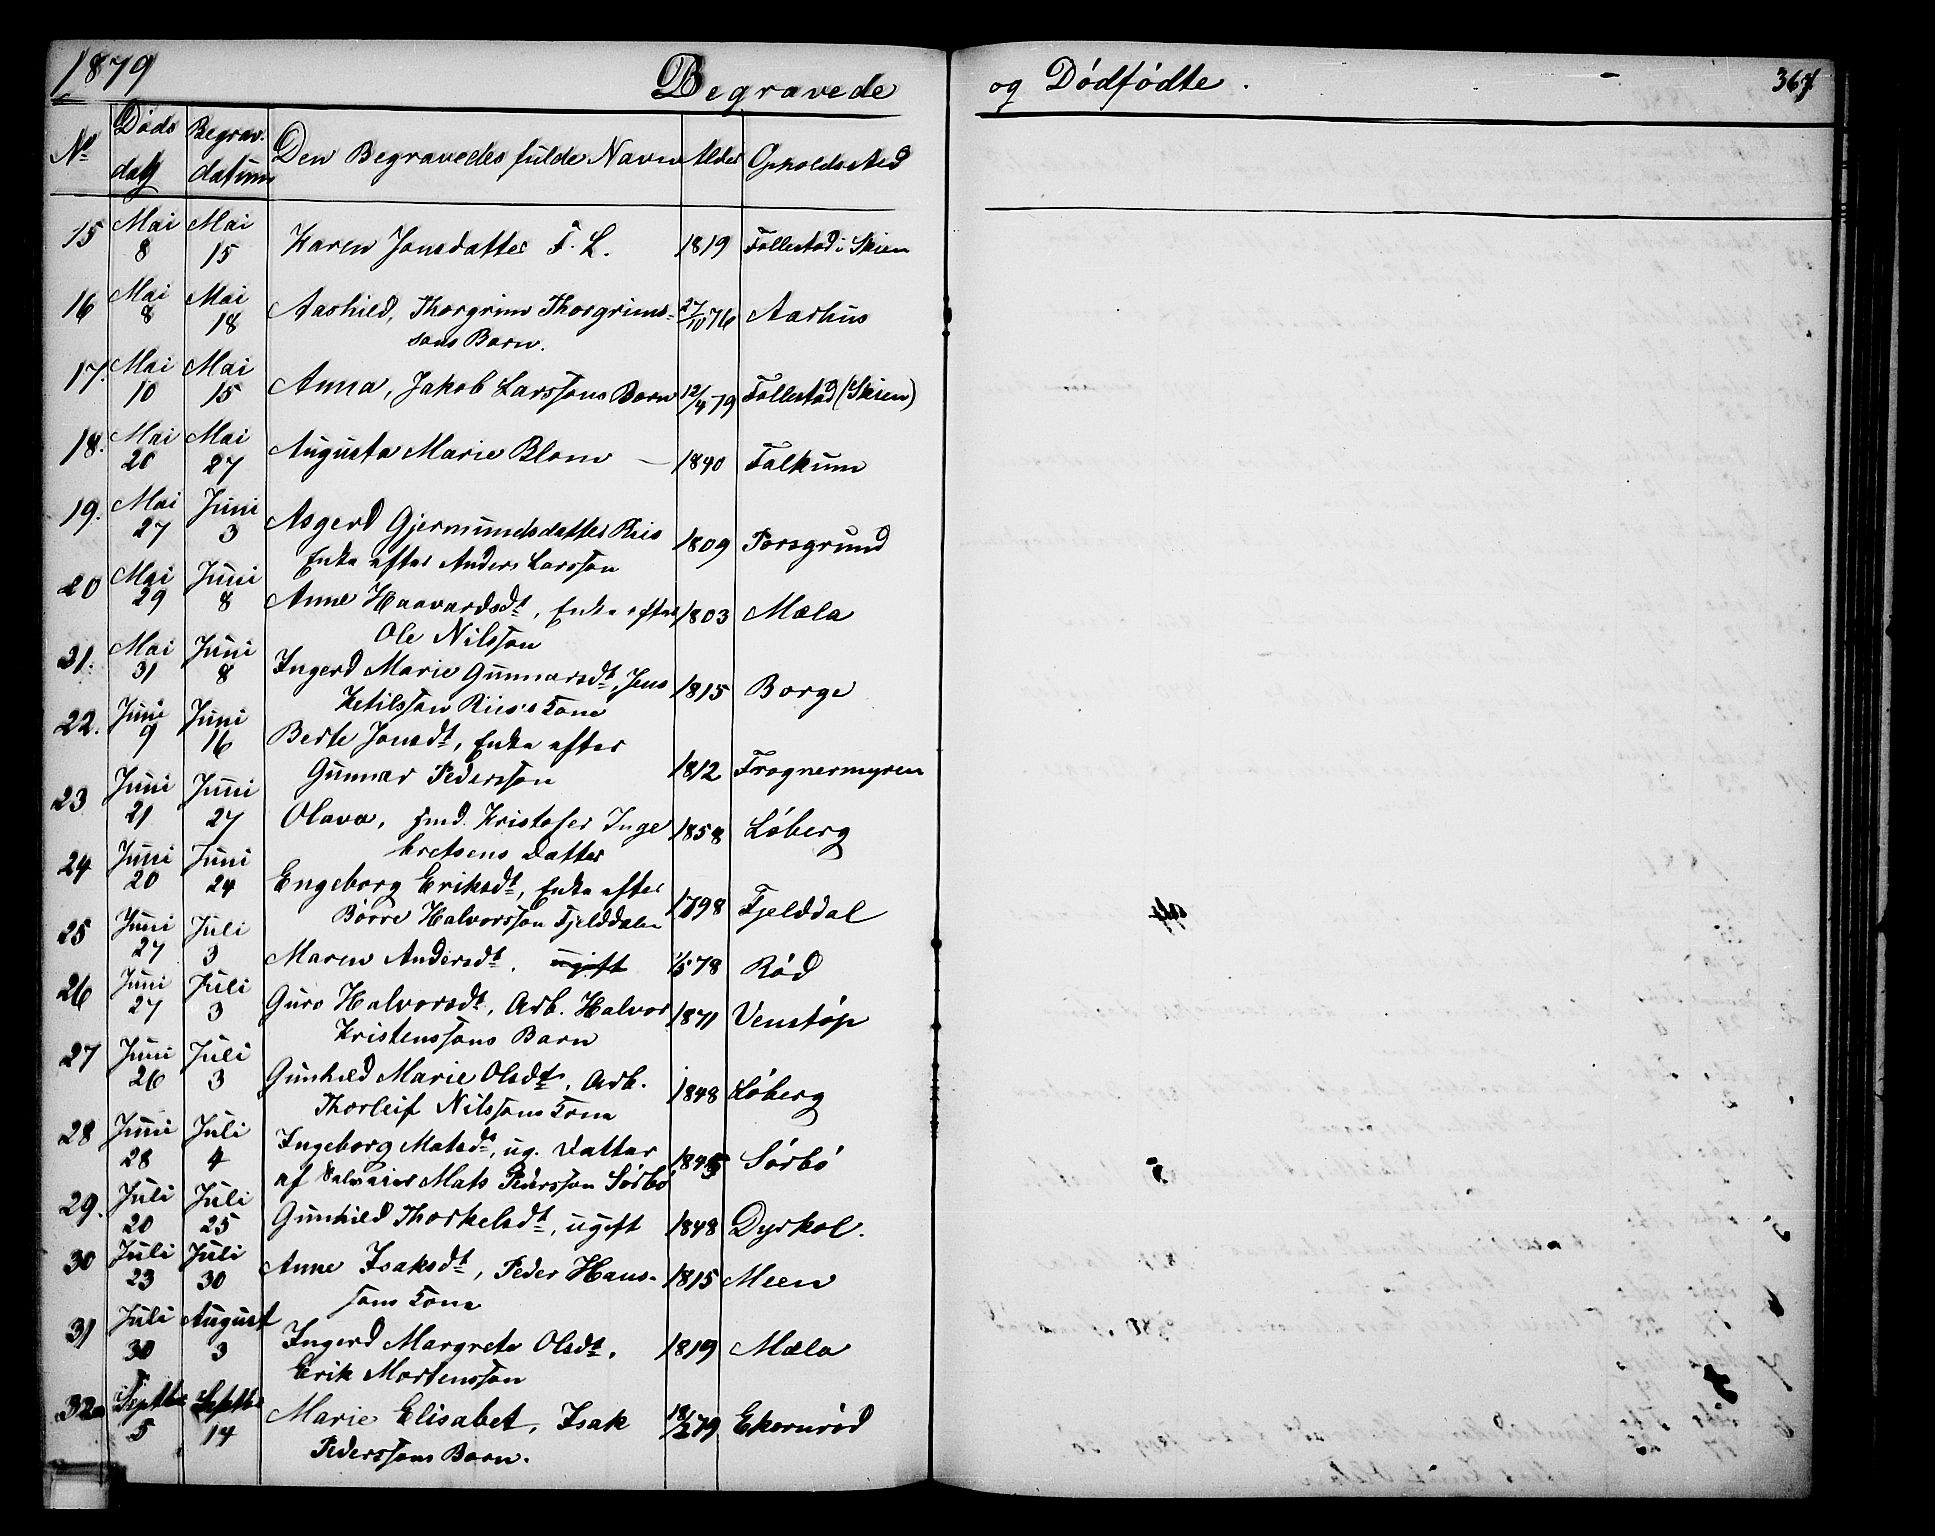 1879 Begravede og Dödfödte. 367
No Döds dag Begrav. datum Den Begravedes fulde Navn Alder Opholdssted
15 Mai 8 Mai 15 Karen Jonsdatter F. L. 1819 Follestad i Skien
16 Mai 8 Mai 18 Aashild, Thorgrim Thorgrims-
sons Barn. 27/10 76 Aarhus
17. Mai 10 Mai 15 Anna, Jakob Larssons Barn 12/4 79 Follestad (Skien)
18. Mai 20 Mai 27 Augusta Marie Blom — 1840 Falkum
19. Mai 27 Juni 3 Asgerd Gjermundsdatter Riis
Enke efter Anders Larsson 1809 Porsgrund
20 Mai 29 Juni 8 Anne Haavardsdt, Enke efter
Ole Nilsson 1803 Mæla
21. Mai 31 Juni 8 Ingerd Marie Gunnarsdt, Jens
Ketilsson Riis's Kone 1815 Borge
22. Juni 9 Juni 16 Berte Jonsdt, Enke efter
Gunnar Pedersson 1812 Frognermyren
23 Juni 21 Juni 27 Olava, Smd. Kristofer Inge
bretsens Datter 1858 Löberg
24 Juni 20 Juni 24 Engeborg Eriksdt, Enke efter
Börre Halvorsson Fjelddalen 1798 Fjelddal
25 Juni 27 Juli 3 Maren Andersdt, ugift 1/5 78 Röd
26 Juni 27 Juli 3 Guro Halvorsdt, Arb. Halvor
Kristenssons Barn 1871 Venstöp
27 Juni 26 Juli 3 Gunhild Marie Olsdt, Arb.
Thorleif Nilssons Kone 1848 Löberg
28 Juni 28 Juli 4 Ingeborg Matsdt, ug. Datter
af Mats Pedersson Sörbö 1845 Sörbö
29. Juli 20 Juli 25 Gunhild Thorkelsdt, ugift 1848 Dyrkol.
30 Juli 23 Juli 30 Anne Isaksdt, Peder Hans-
sons Kone 1815 Meen
31 Juli 30 August 3 Ingerd Margrete Olsdt,
Erik Mortensson 1819 Mæla
32. Septbr 5 Septbr 14 Marie Elisabet, Isak
Pederssons Barn. 18/2 79 Ekornröd